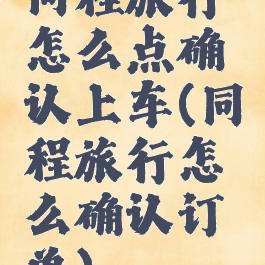 同程旅行
怎么点确
认上车(同
程旅行怎
么确认订
单)